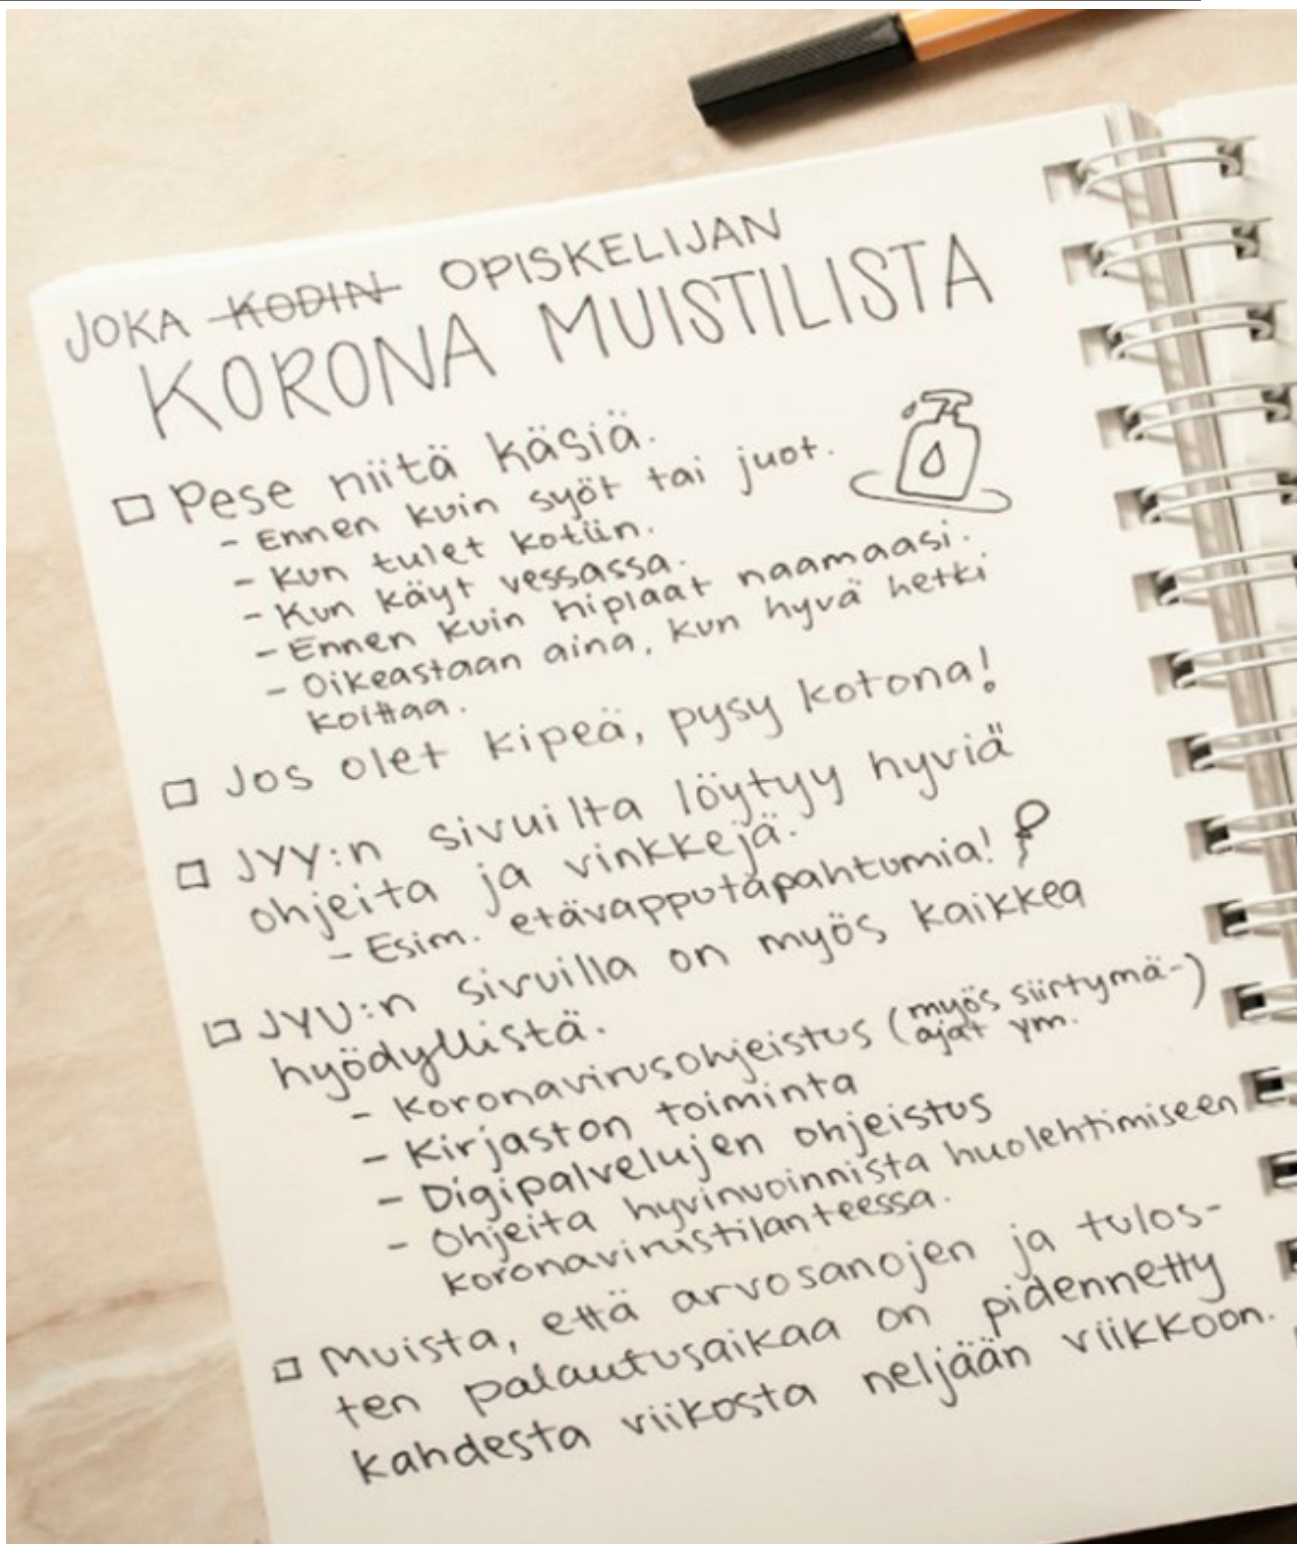 JOKA KODIN OPISKELIJAN
KORONA MUISTILISTA
Pese niitä käsiä.
- Ennen kuin syöt tai juot.
- Kun tulet kotiin.
- Kun käyt vessassa.
- Ennen kuin hiplaat naamaasi.
- Oikeastaan aina, kun hyvä hetki
koittaa.
Jos olet kipeä, pysy kotona!
JYY:n sivuilta löytyy hyviä
ohjeita ja vinkkejä.
- Esim. etävapputapahtumia!
JYU:n sivuilla on myös kaikkea
hyödyllistä.
- Koronavirusohjeistus (myös siirtymä-)
ajat ym.
- Kirjaston toiminta
- Digipalvelujen ohjeistus
- Ohjeita hyvinvoinnista huolehtimiseen
koronavirustilanteessa.
Muista, että arvosanojen ja tulos-
ten palautusaikaa on pidennetty
kahdesta viikosta neljään viikkoon.